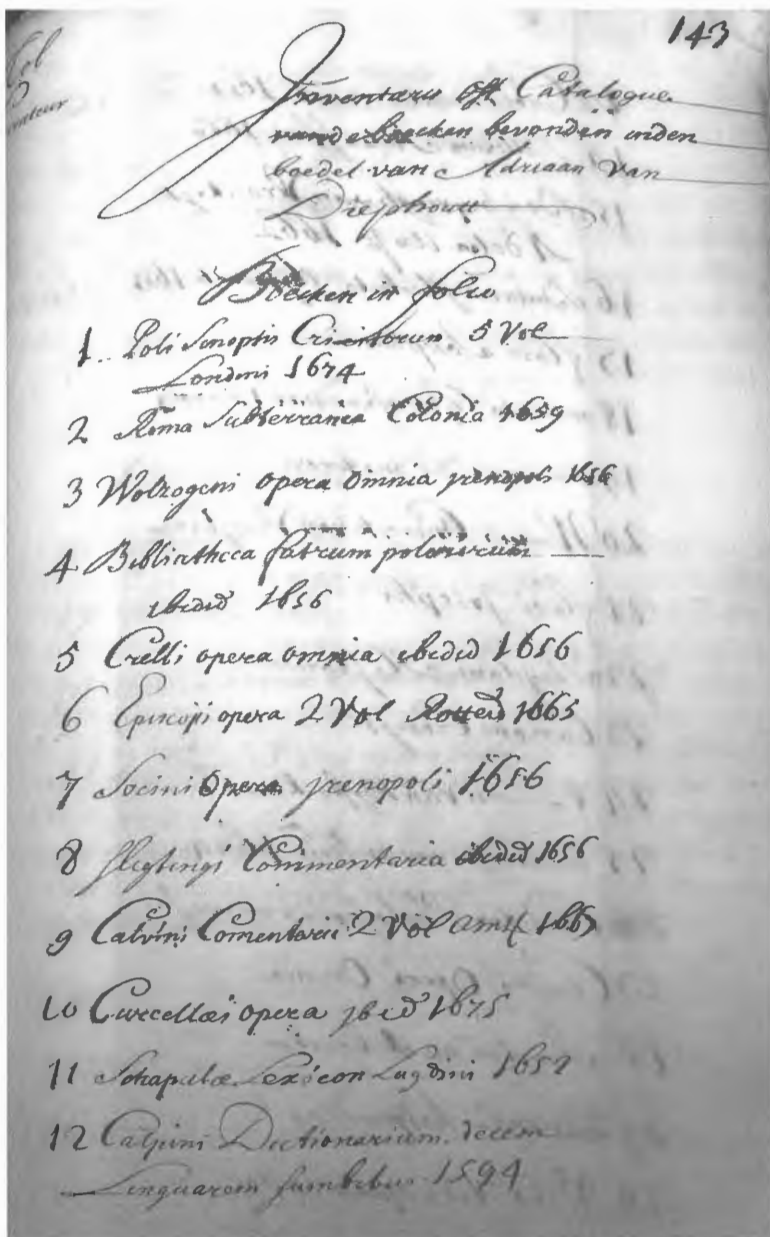 143
Inventaris oft Catalogue
vande boecken bevonden inden
boedel van Adriaan van
Diephout
Boecken in folio
1 Poli Sinoptis Criticorum 5 Vol
Londini 1674
2 Roma Subterranea Colonia 1659
3 Wolzogeni opera omnia jrenopoli 1656
4 Bibliotheca fratrum polonorum
ibidid 1656
5 Crelli opera omnia ibidid 1656
6 Episcopi opera 2 Vol Rotterd 1665
7 Socini opera jrenopoli 1656
8 Sligtingi Commentaria ibidid 1656
9 Calvini Comentarii 2 Vol Amst 1667
10 Curcellæi opera jbid 1675
11 Schapulæ Lexicon Lugdini 1652
12 Calpini Dictionarium decem
Linguarem 1594